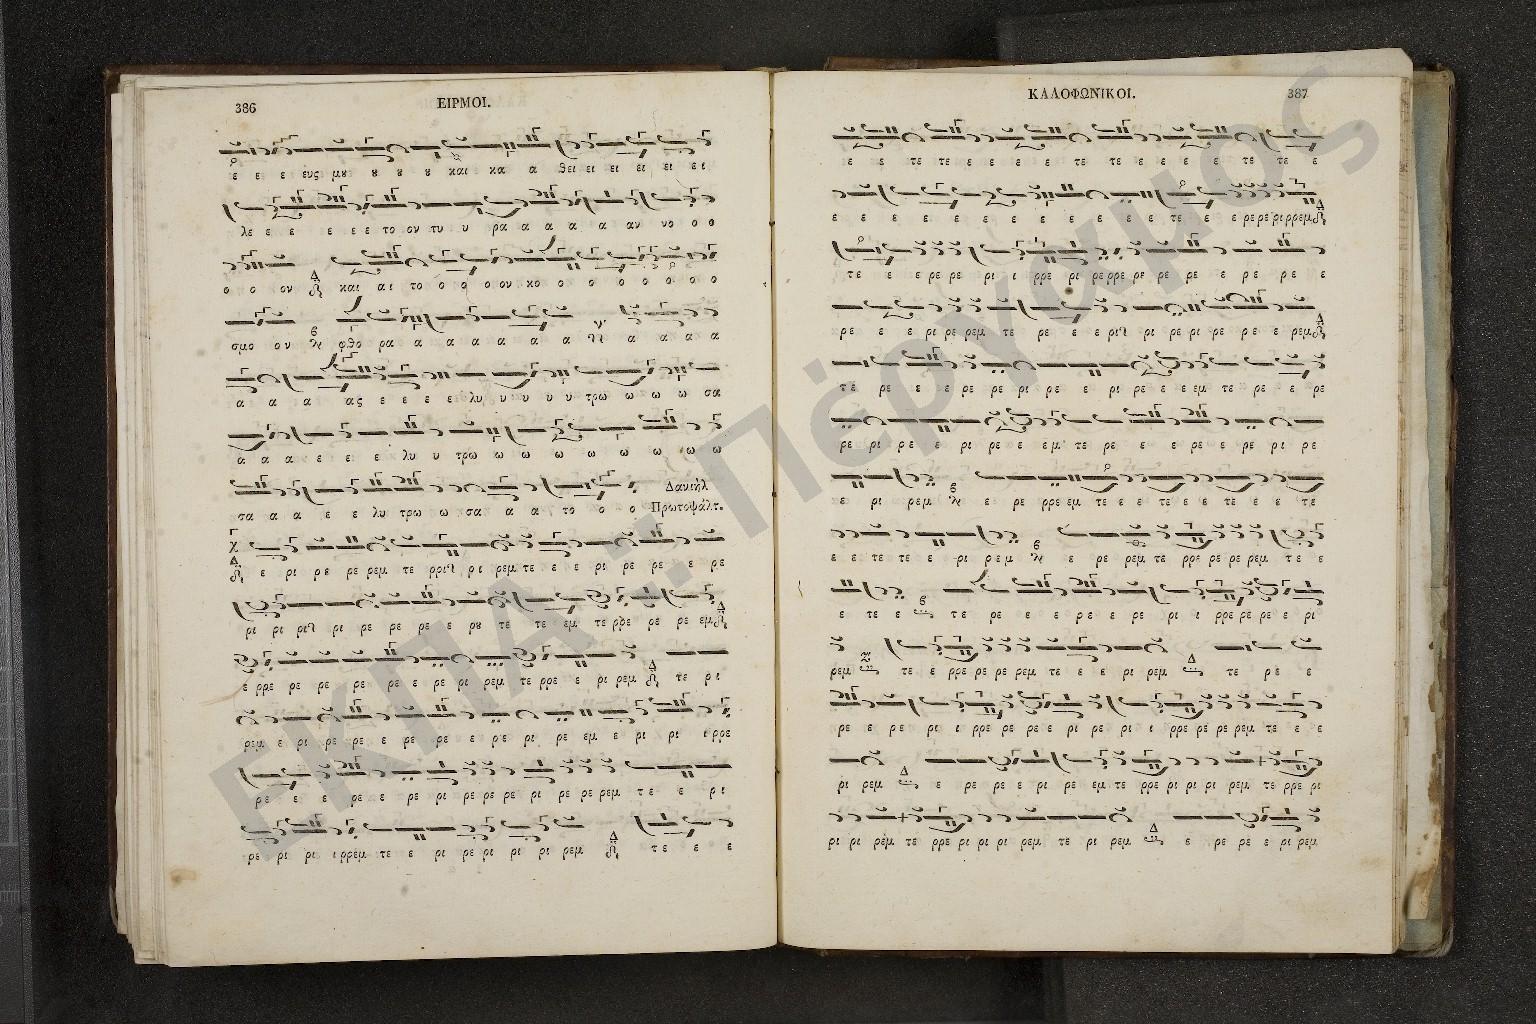 386
ΕΙΡΜΟΙ.
ε ε ε ευς μου ου ου ου και κα α θει ει ει ει ει ει
λε ε ε ε ε ε το ον τυ υ ρα α α α α αν νο ο ο
ο ο ον και αι το ο ο ο ον κο ο ο ο ο ο ο ο
σμο ο ν φθο ρα α α α α α α α α α α
α α α ας ε ε ε ε λυ υ υ υ υ τρω ω ω ω σα
α α α ε ε ε ε λυ υ τρω ω ω ω ω ω ω ω ω
σα α α ε ε λυ τρω ω σα α α το ο ο
Δανιὴλ
Πρωτοψάλτ.
ε ρι ρε ρε ρεμ τε ρρι ρι ρεμ τε ε ε ρι ρε ρε ε ρε
ρι ρι ρι ρι ρε ρε ρε ε ρου τε τε εμ τε ρρε ρε ρε εμ
ε ρρε ρε ρε ρε ρε ε ρε ρι ρεμ τε ρρε ε ρι ρεμ τε ρι
ρεμ ε ρι ρε ρε ε ρε ρε ε ρε ρι ρε εμ ε ρι ρι ι ρρε
ρε ε ε ρε ε ρε ρι ρε ρε ρε ρι ρε ρε ρεμ τε ε ρι
ρε ρι ρι ι ρρεμ τε ε ρι ρε ρι ρι ρι ρεμ τε ε ε
ΚΑΛΟΦΩΝΙΚΟΙ.
387
ε ε τε τε ε ε ε ε τε τε ε ε ε ε τε τε ε
ε ε ε ε ε ε ε ε ε ε ε ε τε ε ε ρε ρε ρι ρρεμ
τε ε ε ρε ρε ρι ι ρρε ρι ρε ρρε ρε ρε ρε ε ρε ρε ε
ρε ε ε ρι ρε ρεμ τε ρε ε ε ρι ρι ρε ρι ρε ρε ε ρεμ
τε ρε ε ε ρε ρε ρι ρε ε ρι ρε ε ε εμ τε ρε ε ρε
ρε ρι ρε ε ρι ρε ε εμ τε ρε ε ε ρε ε ρε ρι ρε
ε ρι ρεμ ε ρε ρρε εμ τε ε ε τε ε τε ε ε τε
ε ε τε τε ε ρι ρεμ ε ρε ρεμ τε ρρε ρε ρε ρεμ τε ε
ε τε ε τε ρε ε ε ρε ε ρε ρι ι ρρε ρε ρε ε ρι
ρεμ τε ε ρρε ρε ρε ρεμ τε ε ε ρι ρεμ τε ρε ε
ρε ε ρε ρι ι ρρε ρε ρε ε ρι ρε ρι ι ρρε ρε ρε ρεμ τε ε ε
ρι ρεμ ε ρε ρε ε ρι ρε εμ τε ρρε ρι ρι ρι ρεμ τε ρρε ρι
ρι ρι ρεμ τε ρρε ρι ρι ρι ρεμ τε ρι ρεμ ε ρε ρε ε ρι ρεμ
ΕΚΠΑ: Πέργαμος